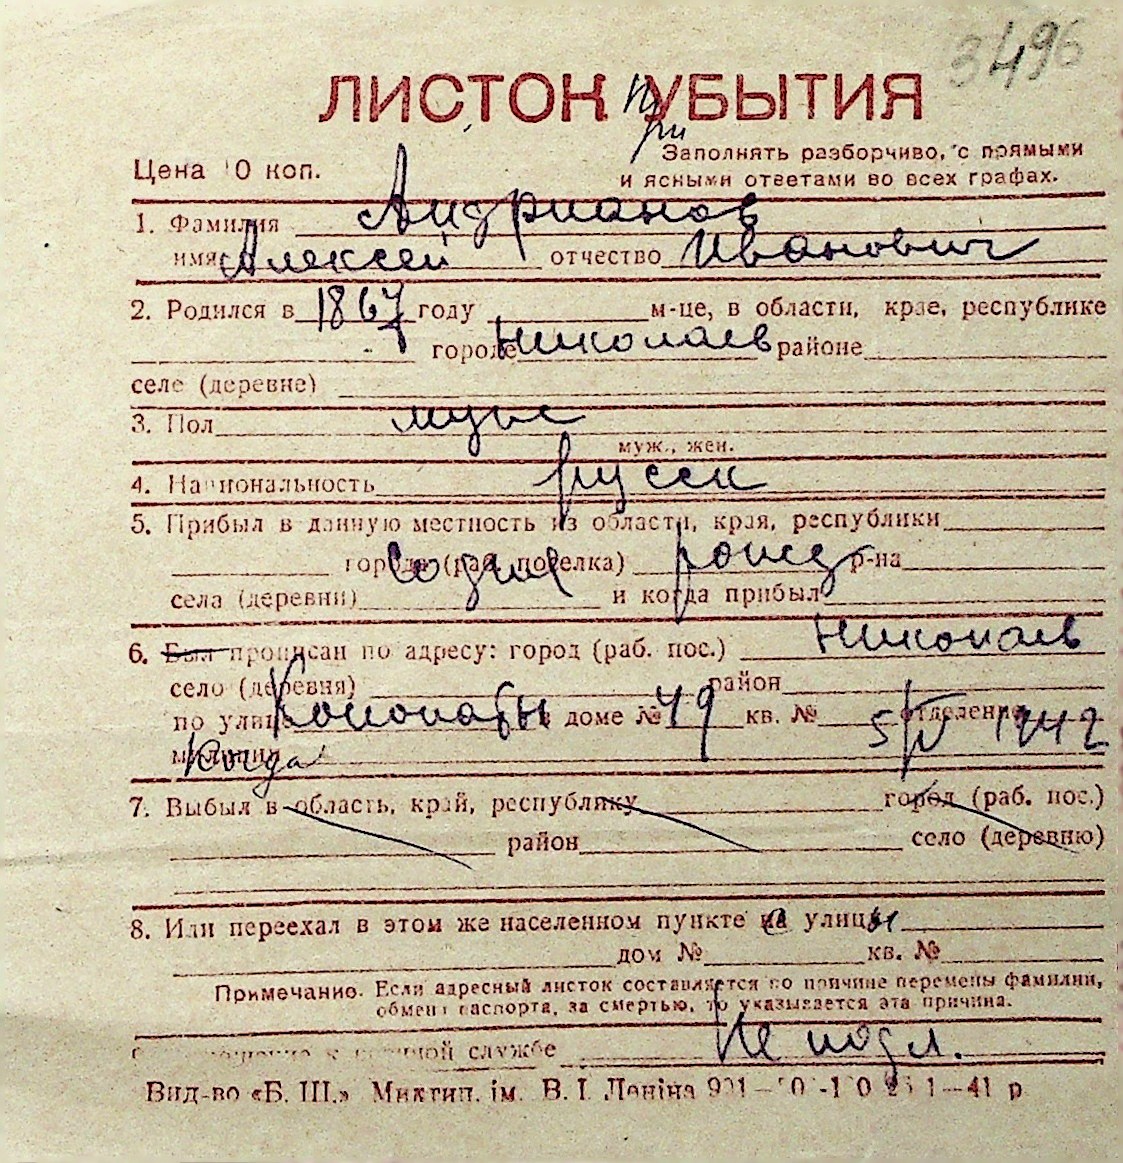 3496
ЛИСТОК УБЫТИЯ
при
Заполнять разборчиво, с прямыми
Цена 10 коп.
и ясными ответами во всех графах.
1. Фамилия Андрианов
имя Алексей отчество Иванович
2. Родился в 1867 году м-це, в области, крае, республике
городе Николаев районе
селе (деревне)
3. Пол мужс
муж., жен.
4. Национальность русск
5. Прибыл в данную местность из области, края, республики
города (раб. поселка) со дня рожд р-на
села (деревни) и когда прибыл
6. Был прописан по адресу: город (раб. пос.) Николаев
село (деревня) район
по улице в доме № 49 кв. № отделение
милиции Когда 5/IV 1942
7. Выбыл в область, край, республику город (раб. пос.)
район село (деревню)
8. Или переехал в этом же населенном пункте с улицы
дом № кв. №
Примечание. Если адресный листок составляется по причине перемены фамилии,
обмена паспорта, за смертью, то указывается эта причина.
службе Не подл.
Вид-во «Б. Ш.» Миктип. ім. В. І. Леніна 41 р